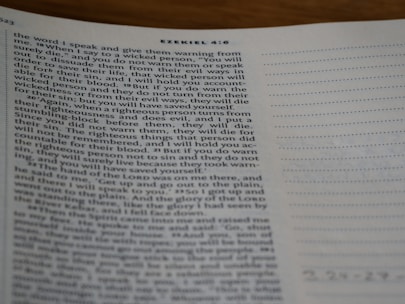 523
EZEKIEL 4:6
the word I speak and give them warning from
18 When I say to a wicked person, 'You will
surely die,' and you do not warn them or speak
out to dissuade them from their evil ways in
order to save their life, that wicked person will
die for their sin, and I will hold you account-
able for their blood. 19 But if you do warn the
wicked person and they do not turn from their
wickedness or from their evil ways, they will die
for their sin; but you will have saved yourself.
20 "Again, when a righteous person turns from
their righteousness and does evil, and I put a
stumbling-block before them, they will die.
Since you did not warn them, they will die for
their sin. The righteous things that person did
will not be remembered, and I will hold you ac-
countable for their blood. 21 But if you do warn
the righteous person not to sin and they do not
sin, they will surely live because they took warn-
ing, and you will have saved yourself.'
22 The hand of the LORD was on me there, and
he said to me, 'Get up and go out to the plain,
and there I will speak to you.' 23 So I got up and
went out to the plain. And the glory of the LORD
was standing there, like the glory I had seen by
the River Kebar, and I fell face down.
24 Then the Spirit came into me and raised me
to my feet. He spoke to me and said: 'Go, shut
yourself inside your house. 25 And you, son of
man, they will tie with ropes; you will be bound
so that you cannot go out among the people. 26 I
will make your tongue stick to the roof of your
3 24-27